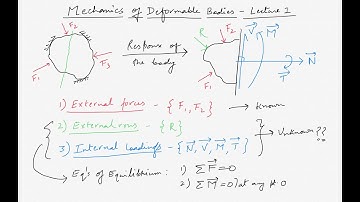 Mechanics of Deformable Bodies - Lecture 1
F₂
F₁
F₃
Response of
the body
R
F₂
F₁
V
M
N
T
1) External forces - { F₁, F₂ } → Known
2) External rxns - { R }
3) Internal Loadings - { N, V, M, T }
Unknown??
Eqⁿs of Equilibrium: 1) ΣF = 0
2) ΣM = 0] at any pt O